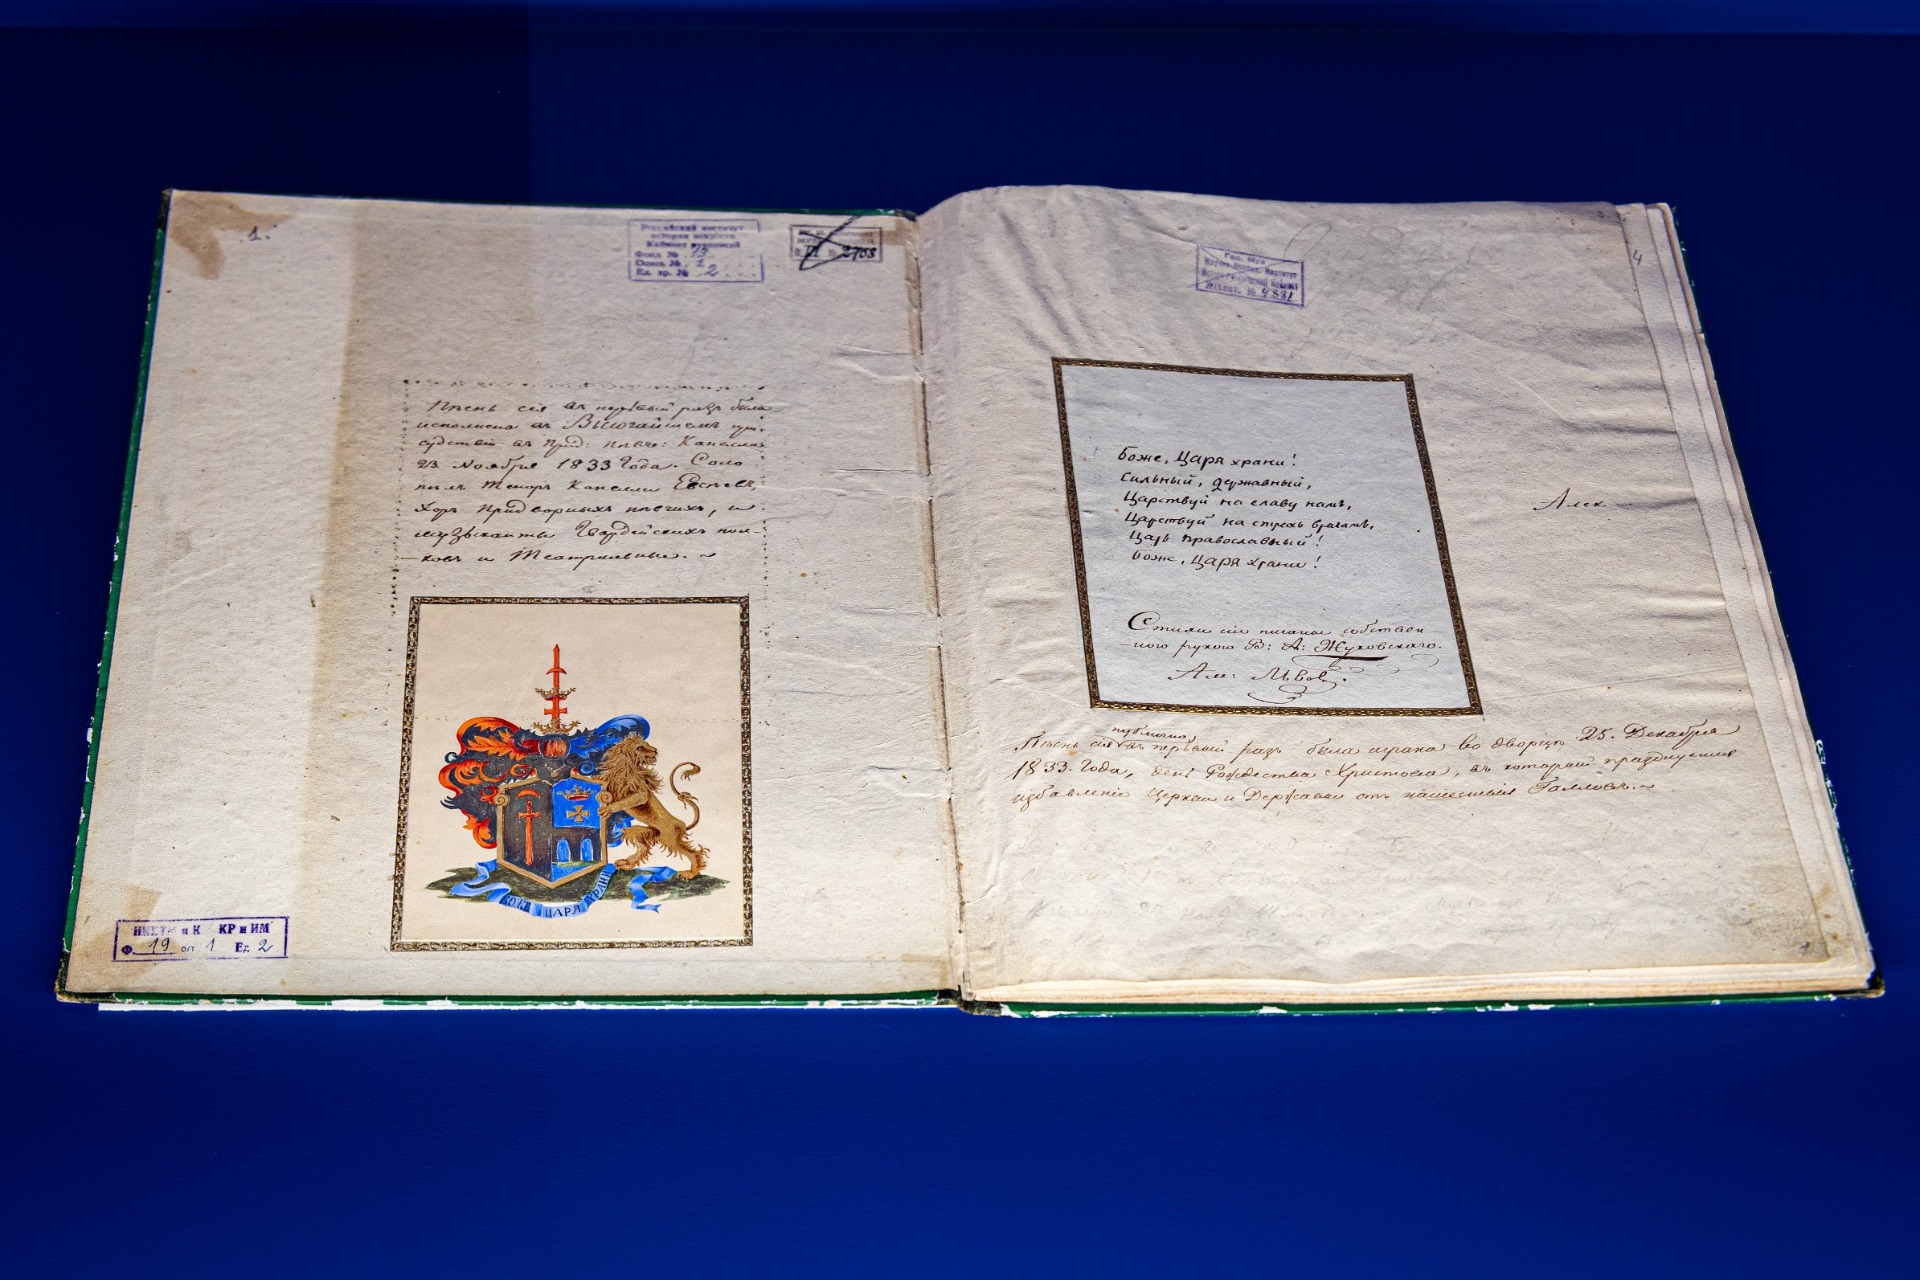 1.
Российский институт
истории искусств
Кабинет рукописей
Фонд № 19
Опись № 1
Ед. хр. № 2
III № 2768
Пѣснь сія въ первый разъ была
исполнена въ Высочайшемъ при-
судствіи въ Прид: пѣвче: Капеллѣ
23 Ноября 1833 Года. Соло
пѣлъ Теноръ Капеллы
Хоръ придворныхъ пѣвчихъ, и
музыканты Гвардейскихъ пол-
ковъ и Театральные.
БОЖЕ ЦАРЯ ХРАНИ
КР и ИМ
Ф. 19 оп 1 Ед. 2
4
Гос.
Институт
кабинет
№ 4881
Боже, Царя храни!
Сильный, державный,
Царствуй на славу намъ,
Царствуй на страхъ врагамъ,
Царь православный!
Боже, Царя храни!
Стихи сіи писаны собствен
ною рукою В: А: Жуковскаго.
Але: Львов.
Алек
публично
Пѣснь сія въ первый разъ была играна во дворцѣ 25. Декабря
1833. Года, день Рождества Христова, въ который празднуется
избавленіе Церкви и Державы отъ нашествія Галловъ.